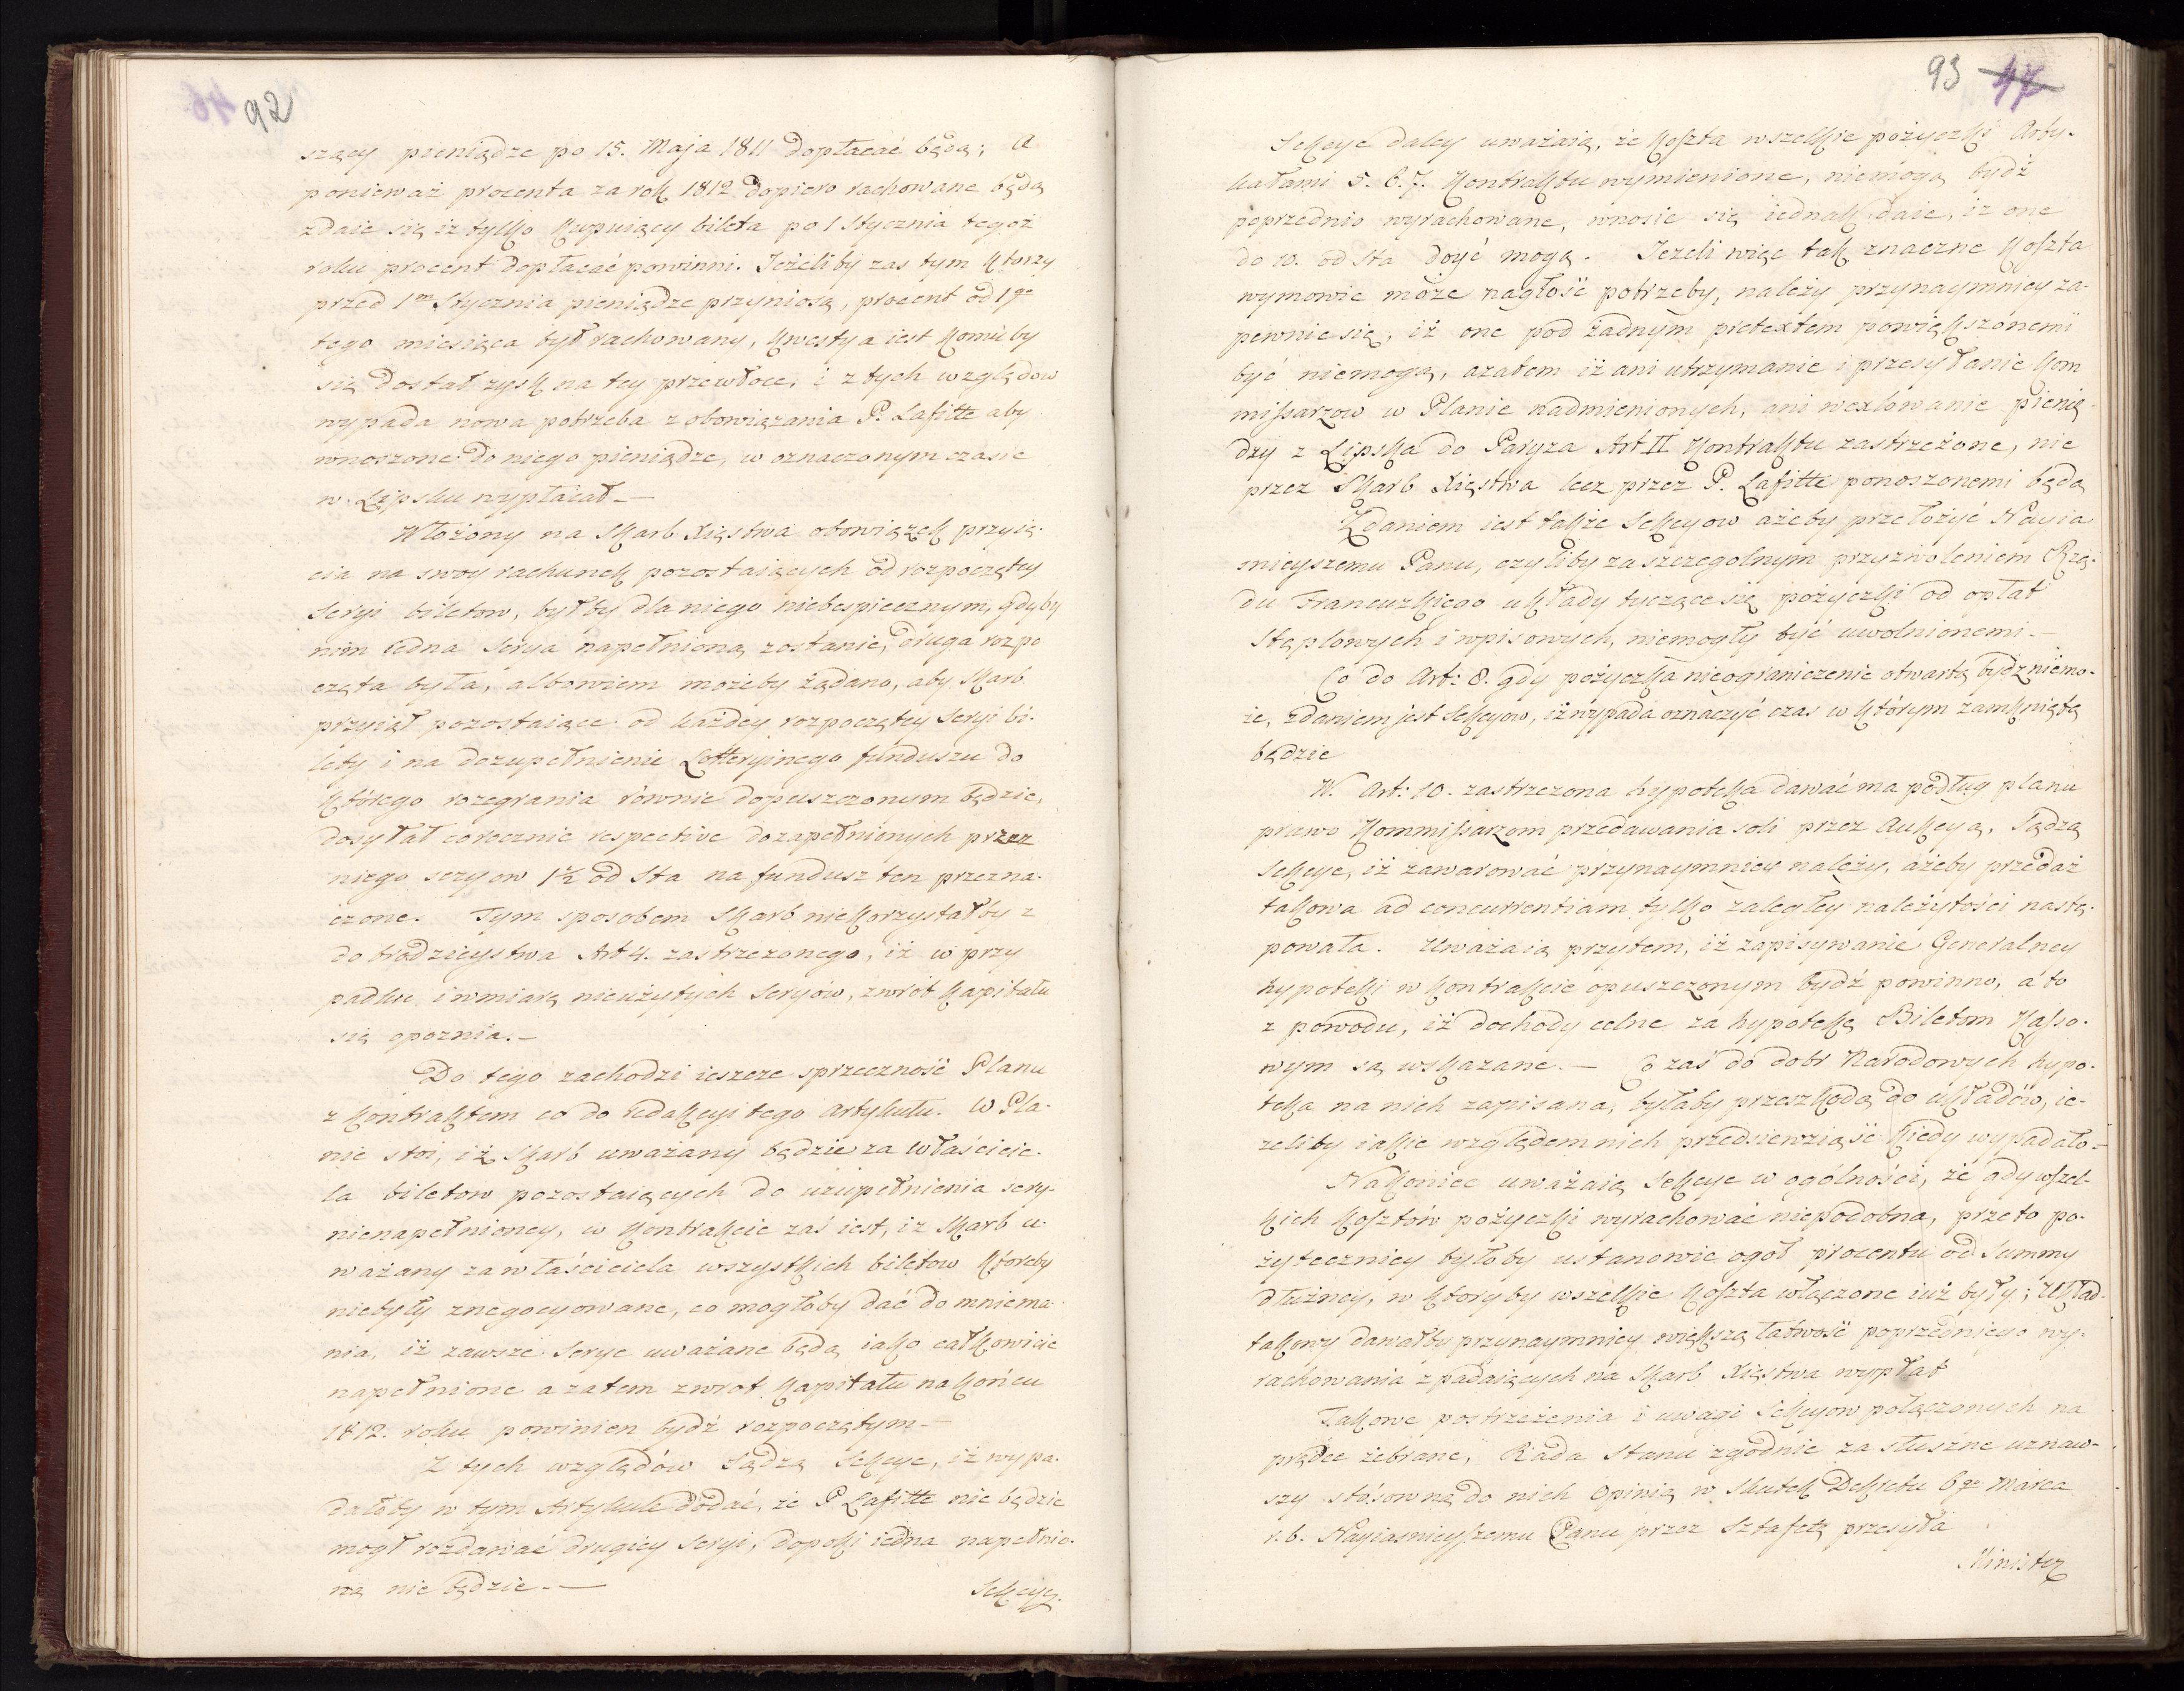 92
szący pieniądze po 15. Maja 1811 dopłacać będą; A
ponieważ procenta za rok 1812 dopiero rachowane będą
zdaie się iż tylko kupuiący bileta po 1 Stycznia tegoż
roku procent dopłacać powinni. Jeżeliby zas tym ktorzy
przed 1m Stycznia pieniądze przyniosą, procent od 1go
tego miesiąca był rachowany, kwestya iest komuby
się dostał zysk na tey przewłoce, i z tych względow
wypada nowa potrzeba zobowiązania P. Lafitte aby
wnoszone do niego pieniądze, w oznaczonym czasie
w Lipsku wypłacał –
Włożony na Skarb Xięstwa obowiązek przyię-
cia na swoy rachunek pozostaiących od rozpoczętey
Seryi biletow, byłby dla niego niebespiecznym, gdyby
nim iedna Serya napełnioną zostanie, druga rozpo
częta była, albowiem możeby żądano, aby Skarb
przyiął pozostaiące od każdey rozpoczętey Seryi bi-
lety i na dozupełnienie Lotteryinego funduszu do
którego rozegrania równie dopuszczonym będzie,
dosyłał corocznie respective dozapełnionych przez
niego seryow 1½ od Sta na fundusz ten przezna-
czone. Tym sposobem Skarb niekorzystałby z
dobrodzieystwa Art 4. zastrzezonego, iż w przy
padku, i wmiarę nieużytych Seryów, zwrót kapitału
się opoznia. –
Do tego zachodzi ieszcze sprzeczność Planu
z kontraktem co do redakcyi tego artykułu. W Pla-
nie stoi, iż Skarb uważany będzie za właścicie-
la biletow pozostaiących do uzupełnienia sery-
nienapełnioney, w kontrakcie zaś iest, iż Skarb u-
ważany za właściciela wszystkich biletow któreby
niebyły znegocyowane, co mogłoby dać do mniema-
nia, iż zawsze Serye uważane będą iako całkowicie
napełnione a zatem zwrot kapitału na końcu
1812. roku powinien bydź rozpoczętym –
Z tych względów Sądzą Sekcye, iż wypa-
dałoby w tym Artykule dodać, że P Lafitte nie będzie
mogł rozdawać drugiey Seryi, dopoki iedna napełnio-
ną nie będzie. –
Sekcye
93 47
Sekcye daley uważaią, że koszta wszelkie pożyczki Arty-
kułami 5. 6. 7. kontraktu wymienione, niemogą bydź
poprzednio wyrachowane, wnosić się iednak daie, iż one
do 10. od sta doyć mogą. Jezeli więc tak znaczne koszta
wymowić może nagłość potrzeby, należy przynaymniey za-
pewnić się, iż one pod żadnym pretextem powiększonemi
być niemogą, azatem iż ani utrzymanie i przesyłanie Kom
missarzow w Planie nadmienionych, ani wexlowanie pienię-
dzy z Lipska do Paryza Art II kontraktu zastrzeżone, nie
przez Skarb Xięstwa lecz przez P. Lafitte ponoszonemi będą
Zdaniem iest także Sekcyow ażeby przełożyć Nayia
snieyszemu Panu, czyliby za szczegolnym przyzwoleniem Rzą-
du Francuzkiego układy tyczące się pożyczki od opłat
Stęplowych i wpisowych, niemogły być uwolnionemi. –
Co do Art: 8. gdy pożyczka nieograniczenie otwartą bydź niemo-
że, zdaniem jest Sekcyow, iż wypada oznaczyć czas w którym zamkniętą
będzie
W. Art: 10. zastrzezona hypoteka dawać ma podług planu
prawo Kommissarzom przedawania soli przez Aukcyą. Sądzą
Sekcye, iż zawarować przynaymniey należy, ażeby przedaż
takowa ad concurrentiam tylko zaległey należytości nastę-
powała. Uważaią przytem, iż zapisywanie Generalney
hypoteki w kontrakcie opuszczonym bydź powinno, a to
z powodu, iż dochody celne za hypotekę Biletom Kasso-
wym są wskazane. – Co zaś do dobr Narodowych hypo-
teka na nich zapisana, byłaby przeszkodą do układów, ie-
zeliby iakie względem nich przedsiewziąść kiedy wypadało –
Nakoniec uważaią Sekcye w ogólności, że gdy wszel-
kich kosztów pożyczki wyrachować niepodobna, przeto po-
żyteczniey byłoby ustanowić ogoł procentu od Summy
dłużney, w ktoryby wszelkie koszta włączone iuż były; Układ-
takowy dawałby przynaymniey większą łatwość poprzedniego wy-
rachowania zpadaiących na Skarb Xięstwa wypłat
Takowe postrzeżenia i uwagi Sekcyow połączonych na
prędce zebrane, Rada Stanu zgodnie za słuszne uznaw-
szy stósowną do nich Opinią w skutek Dekretu 6go Marca
r. b. Nayiasnieyszemu Panu przez Sztafetę przesyła
Minister